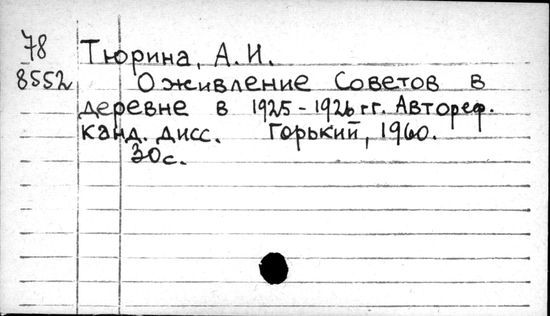 78 Тюрина, А.И.
8552 Оживление Советов в
деревне в 1925-1926 гг. Автореф.
канд. дисс. Горький, 1960.
30с.